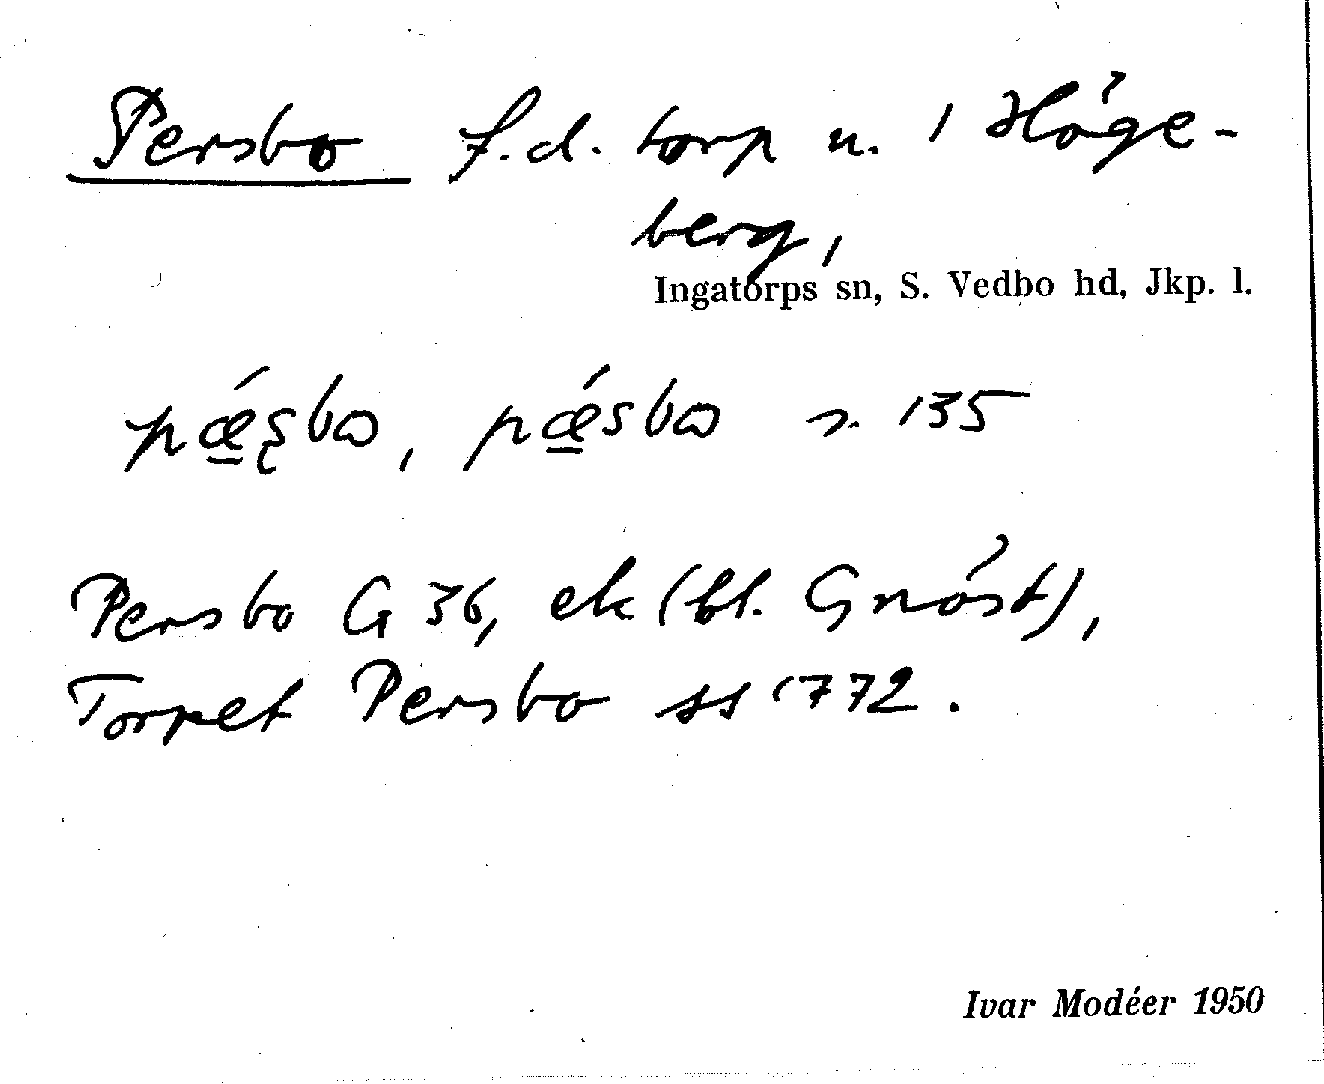 Persbo f.d. torp u. 1 Höge-
berg,
Ingatorps sn, S. Vedbo hd, Jkp. l.
pǽ̱s̨bω, pǽ̱sbω s. 135
Persbo G 36, ek (bl. Gnöst),
Torpet Persbo ss 1772.
Ivar Modéer 1950